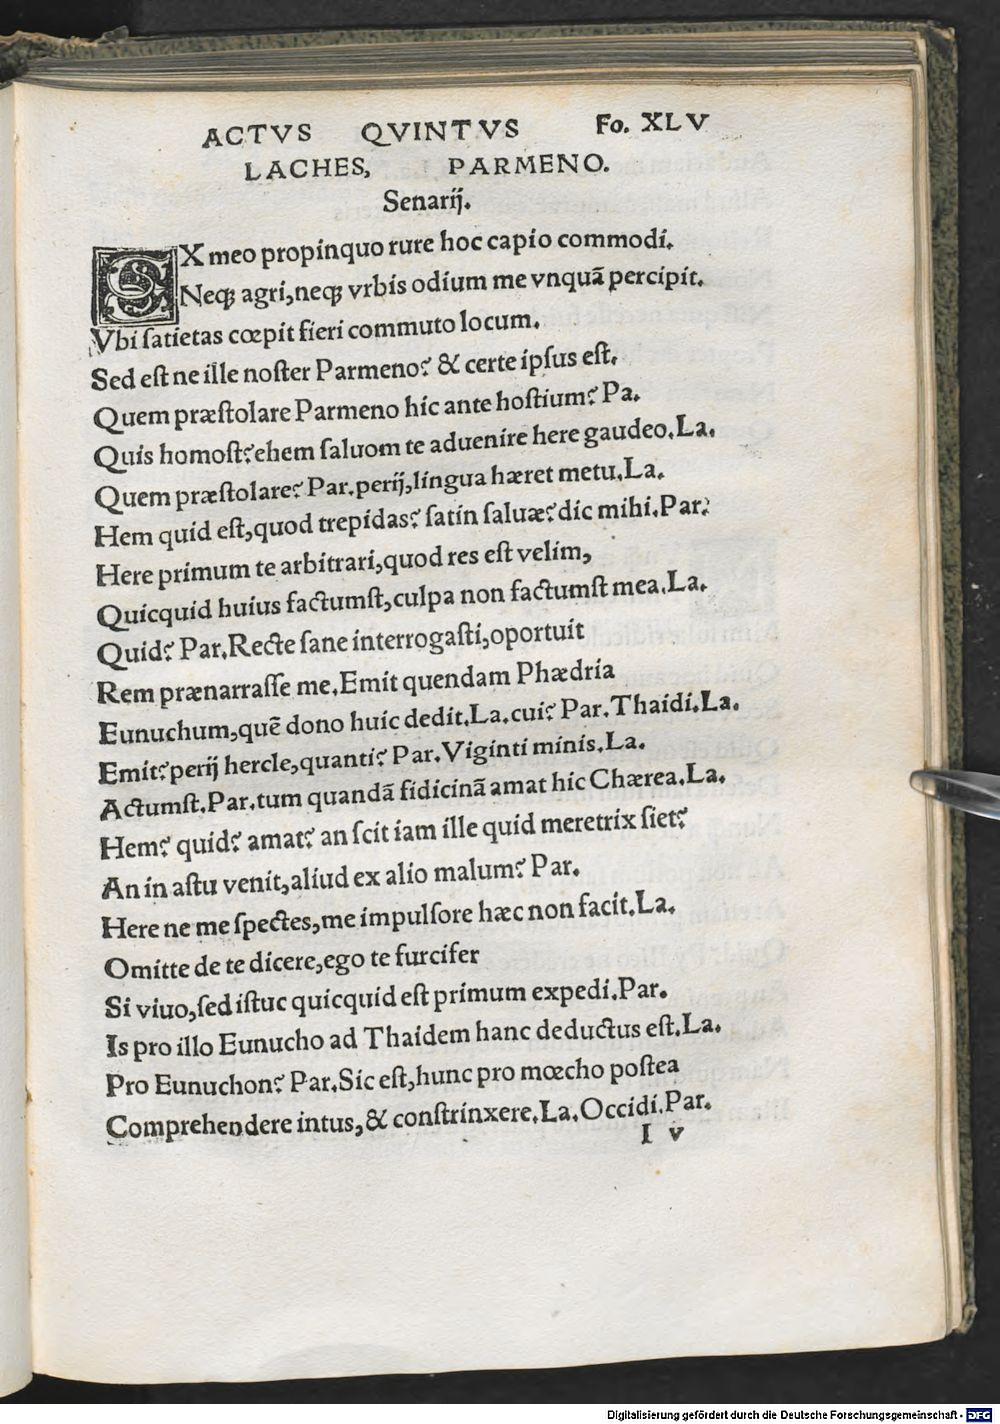 ACTVS QVINTVS Fo. XLV
LACHES, PARMENO.
Senarij.
EX meo propinquo rure hoc capio commodi.
Neqꝫ agri, neqꝫ vrbis odium me vnquã percipit.
Vbi ſatietas cœpit fieri commuto locum.
Sed eſt ne ille noſter Parmeno? & certe ipſus eſt.
Quem præſtolare Parmeno hic ante hoſtium? Pa.
Quis homoſt? ehem ſaluom te aduenire here gaudeo. La.
Quem præſtolare? Par. perij, lingua hæret metu. La.
Hem quid eſt, quod trepidas? ſatin ſaluæ? dic mihi. Par.
Here primum te arbitrari, quod res eſt velim,
Quicquid huius factumſt, culpa non factumſt mea. La.
Quid? Par. Recte ſane interrogaſti, oportuit
Rem prænarraſſe me. Emit quendam Phædria
Eunuchum, quẽ dono huic dedit. La. cui? Par. Thaidi. La.
Emit? perij hercle, quanti? Par. Viginti minis. La.
Actumſt. Par. tum quandã fidicinã amat hic Chærea. La.
Hem? quid? amat? an ſcit iam ille quid meretrix ſiet?
An in aſtu venit, aliud ex alio malum? Par.
Here ne me ſpectes, me impulſore hæc non facit. La.
Omitte de te dicere, ego te furcifer
Si viuo, ſed iſtuc quicquid eſt primum expedi. Par.
Is pro illo Eunucho ad Thaidem hanc deductus eſt. La.
Pro Eunuchon? Par. Sic eſt, hunc pro mœcho poſtea
Comprehendere intus, & conſtrinxere. La. Occidi. Par.
I v
Digitalisierung gefördert durch die Deutsche Forschungsgemeinschaft - DFG